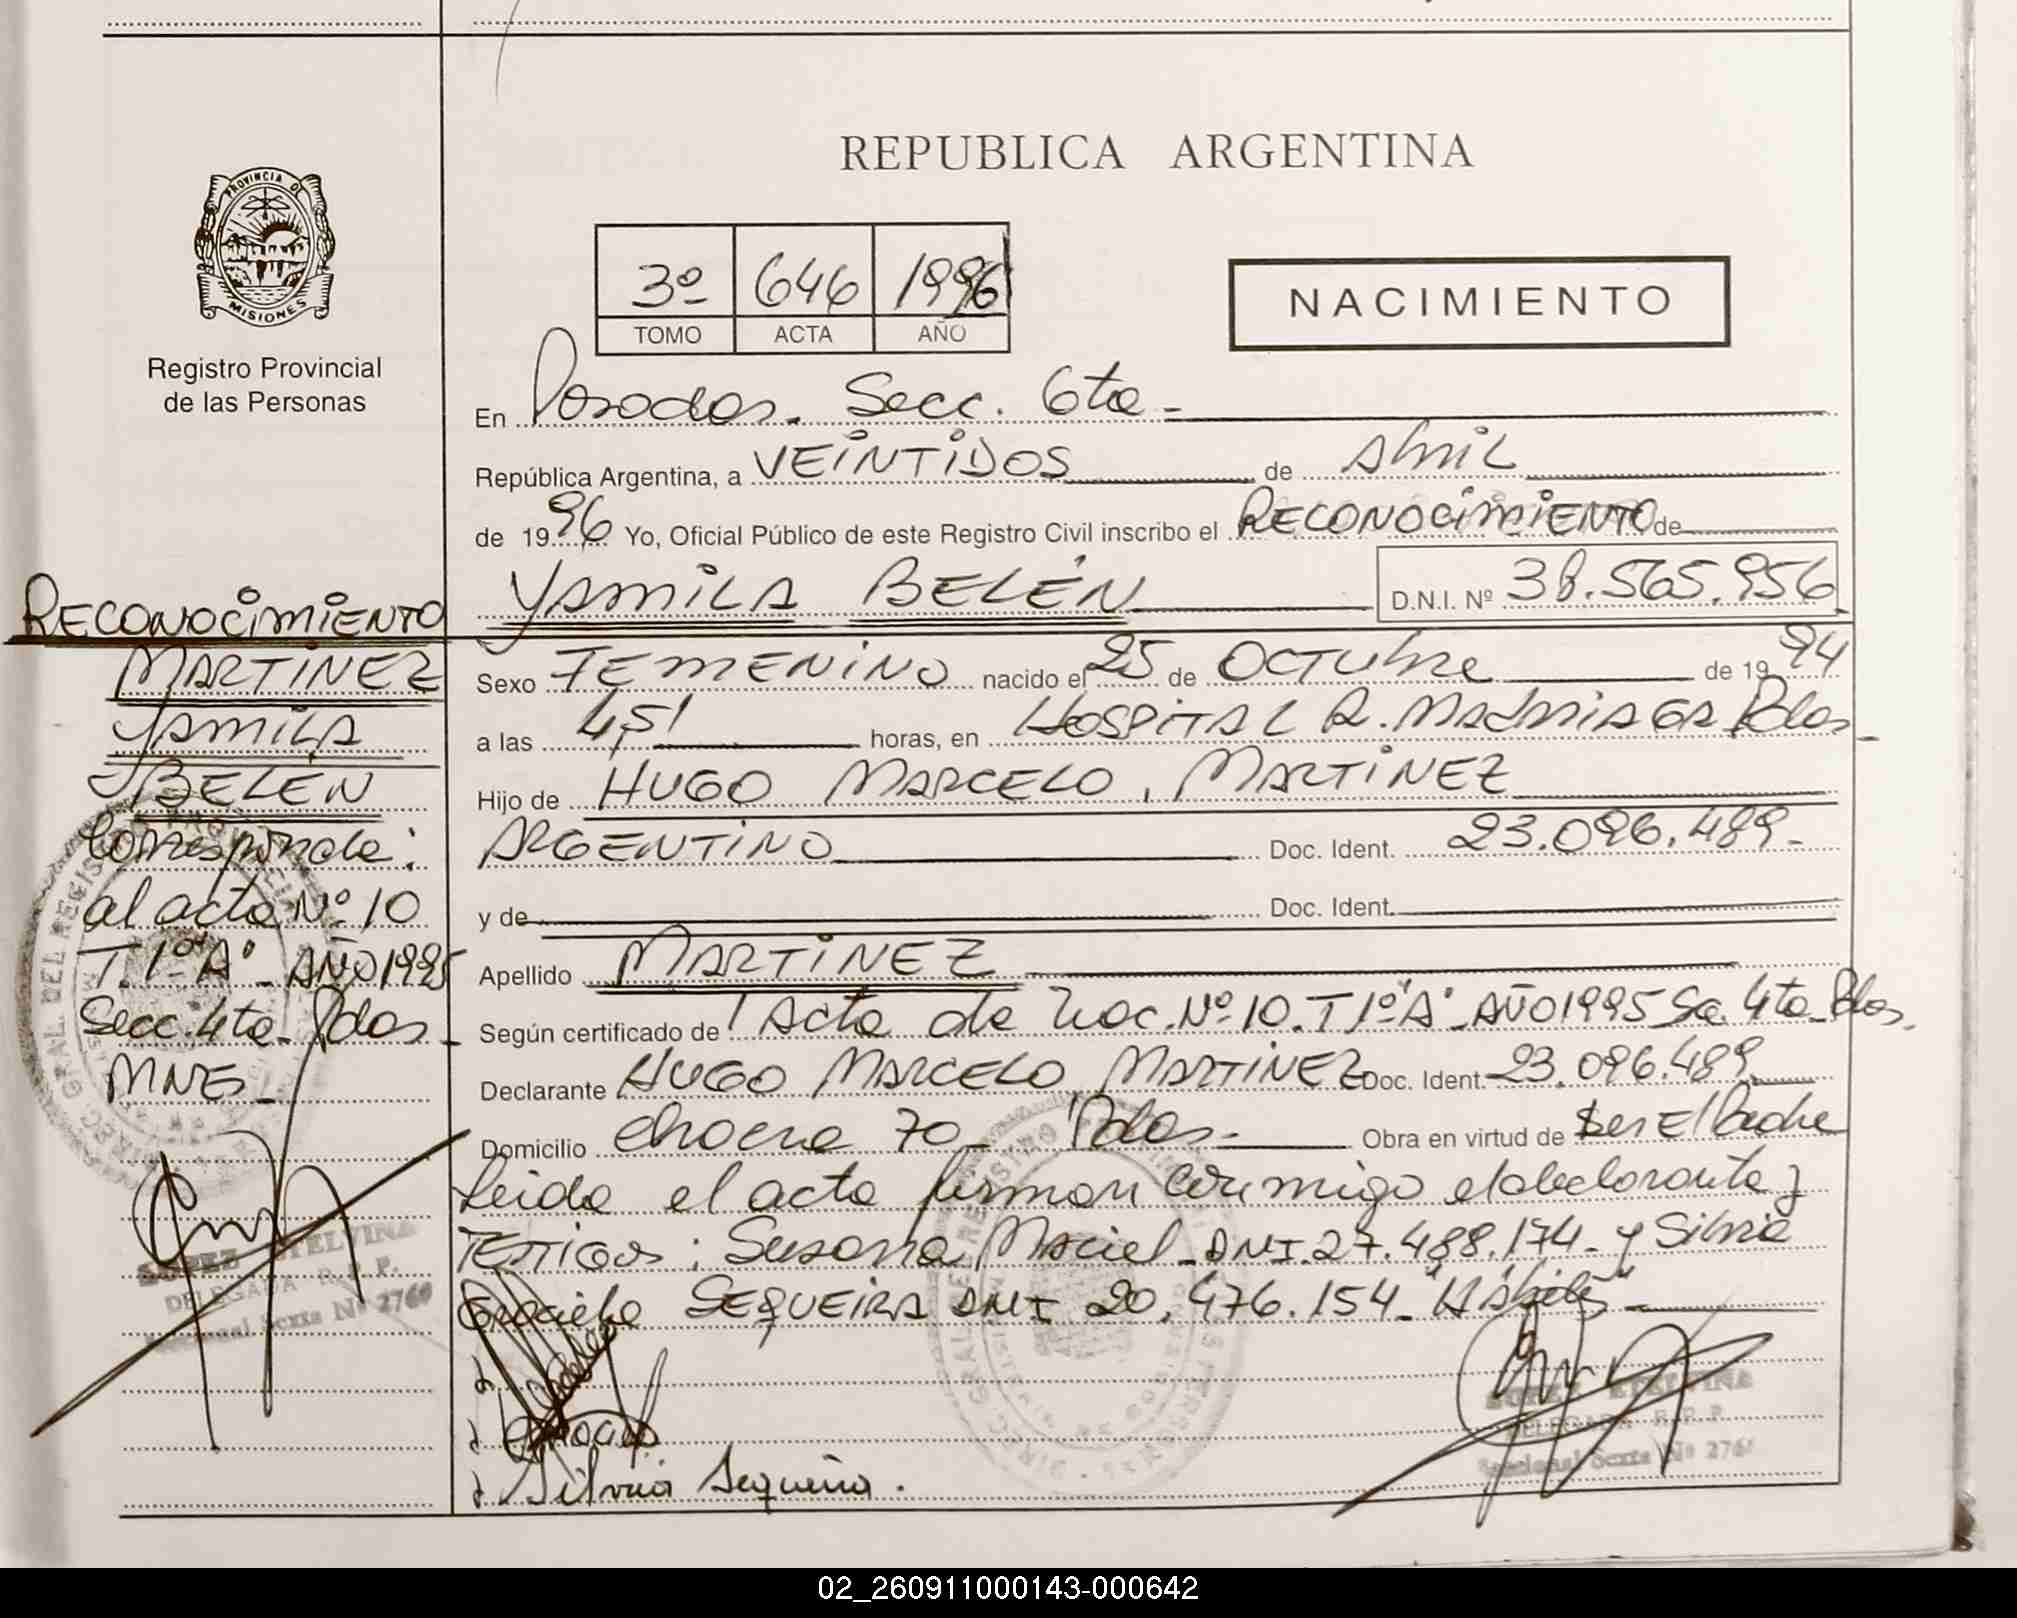 REPUBLICA ARGENTINA
PROVINCIA DE
MISIONES
Registro Provincial
de las Personas
3º 646 1996
TOMO ACTA AÑO
NACIMIENTO
En Posadas. Secc. 6ta -
República Argentina, a VEINTIDOS de Abril
de 1996 Yo, Oficial Público de este Registro Civil inscribo el RECONOCIMIENTO de
YAMILA BELÉN D.N.I. Nº 38.565.956
Sexo FEMENINO nacido el 25 de OCTubre de 1994
a las 4,51 horas, en HOSPITAL R. MADARIAGA Pdas -
Hijo de HUGO MARCELO, MARTINEZ
ARGENTINO Doc. Ident. 23.096.489-
y de Doc. Ident.
Apellido MARTINEZ
Según certificado de Acta de Nac. Nº 10. T 1º "A" - AÑO 1995 Sc. 4ta - Pdas.
Declarante HUGO MARCELO MARTINEZ Doc. Ident. 23.096.489
Domicilio 70 - Pdas - Obra en virtud de Ser El Padre
Leida el acta firman conmigo el declarante y
TESTIGOS: Susana Maciel - DNI. 27.488.174 - y Silvia
Graciela SEQUEIRA DNI 20.476.154 - "Hábiles" -
Silvia Sequeira.
RECONOCIMIENTO
MARTINEZ
YAMILA
BELEN
Corresponde:
al acta Nº 10
T. 1º "A" - AÑO 1995
Secc. 4ta - Pdas -
MNES -
ETELVINA
DELEGADA R. P. P.
Seccional Sexta Nº 2760
ETELVINA
DELEGADA R. P. P.
Seccional Sexta Nº 276
02_260911000143-000642